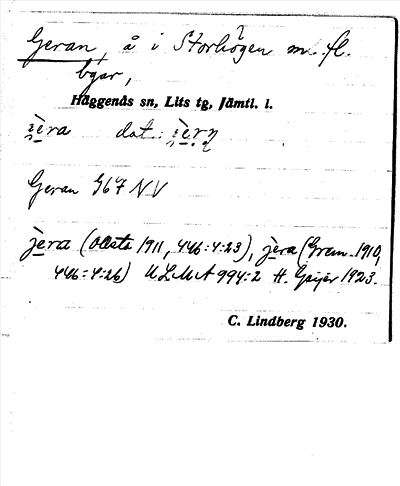 Geran, å i Storhögen m. fl.
byar,
Häggenås sn, Lits tg, Jämtl. l.
i̯èra dat: i̯èrn
Geran GK7 NV
jèra (Olsts 1911, 446:4:23), jèra (Gram. 1910,
446:4:26) ULMA 994:2 H. Geijer 1923.
C. Lindberg 1930.